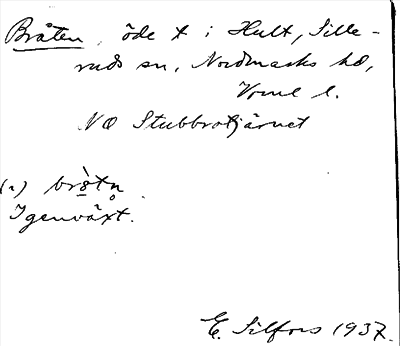 Bråten, öde t i Hult, Sille-
ruds sn, Nordmarks hd,
Vrml l.
NO Stubbrotjärnet
(a) bròtn̥
Igenväxt.
E. Silfors 1937.